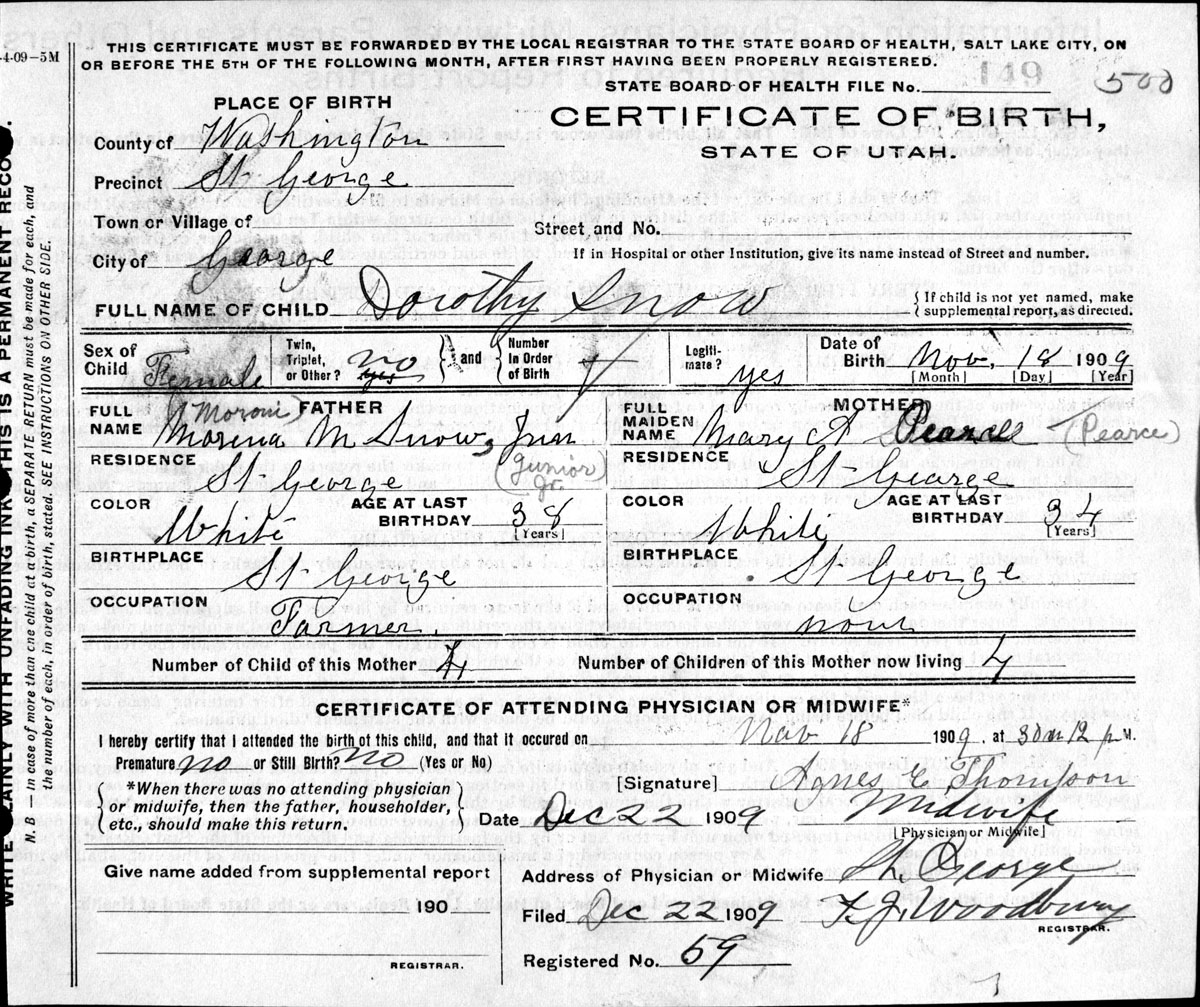 -4-09-5M
THIS CERTIFICATE MUST BE FORWARDED BY THE LOCAL REGISTRAR TO THE STATE BOARD OF HEALTH, SALT LAKE CITY, ON
OR BEFORE THE 5TH OF THE FOLLOWING MONTH, AFTER FIRST HAVING BEEN PROPERLY REGISTERED.
149 500
STATE BOARD OF HEALTH FILE No.
PLACE OF BIRTH
CERTIFICATE OF BIRTH,
STATE OF UTAH.
County of Washington
Precinct St George
Town or Village of
Street and No.
City of George
If in Hospital or other Institution, give its name instead of Street and number.
FULL NAME OF CHILD Dorothy Snow
{If child is not yet named, make
supplemental report, as directed.
Sex of Child Female
Twin, Triplet, or Other? no yes } and { Number In Order of Birth
Legiti-mate? yes
Date of Birth Nov. 18 1909
[Month] [Day] [Year]
FATHER
FULL NAME Morena M Snow, Jun
(Moroni)
(Junior Jr.)
RESIDENCE St George
COLOR White
AGE AT LAST BIRTHDAY 38
[Years]
BIRTHPLACE
St George
OCCUPATION
Farmer
MOTHER
FULL MAIDEN NAME Mary A Pearce (Pearce)
RESIDENCE
St George
COLOR White
AGE AT LAST BIRTHDAY 34
[Years]
BIRTHPLACE
St George
OCCUPATION
none
Number of Child of this Mother 4
Number of Children of this Mother now living 4
CERTIFICATE OF ATTENDING PHYSICIAN OR MIDWIFE*
I hereby certify that I attended the birth of this child, and that it occured on Nov 18 1909, at 30 m 12 p M.
Premature no or Still Birth? no (Yes or No)
*When there was no attending physician
or midwife, then the father, householder,
etc., should make this return.
[Signature] Agnes C Thompson
Midwife
Date Dec 22 1909
[Physician or Midwife]
Give name added from supplemental report
190
REGISTRAR.
Address of Physician or Midwife St. George
Filed Dec 22 1909 F. J. Woodbury
REGISTRAR.
Registered No. 59
WRITE PLAINLY WITH UNFADING INK THIS IS A PERMANENT RECORD.
N. B. — In case of more than one child at a birth, a SEPARATE RETURN must be made for each, and
the number of each, in order of birth, stated. SEE INSTRUCTIONS ON OTHER SIDE.